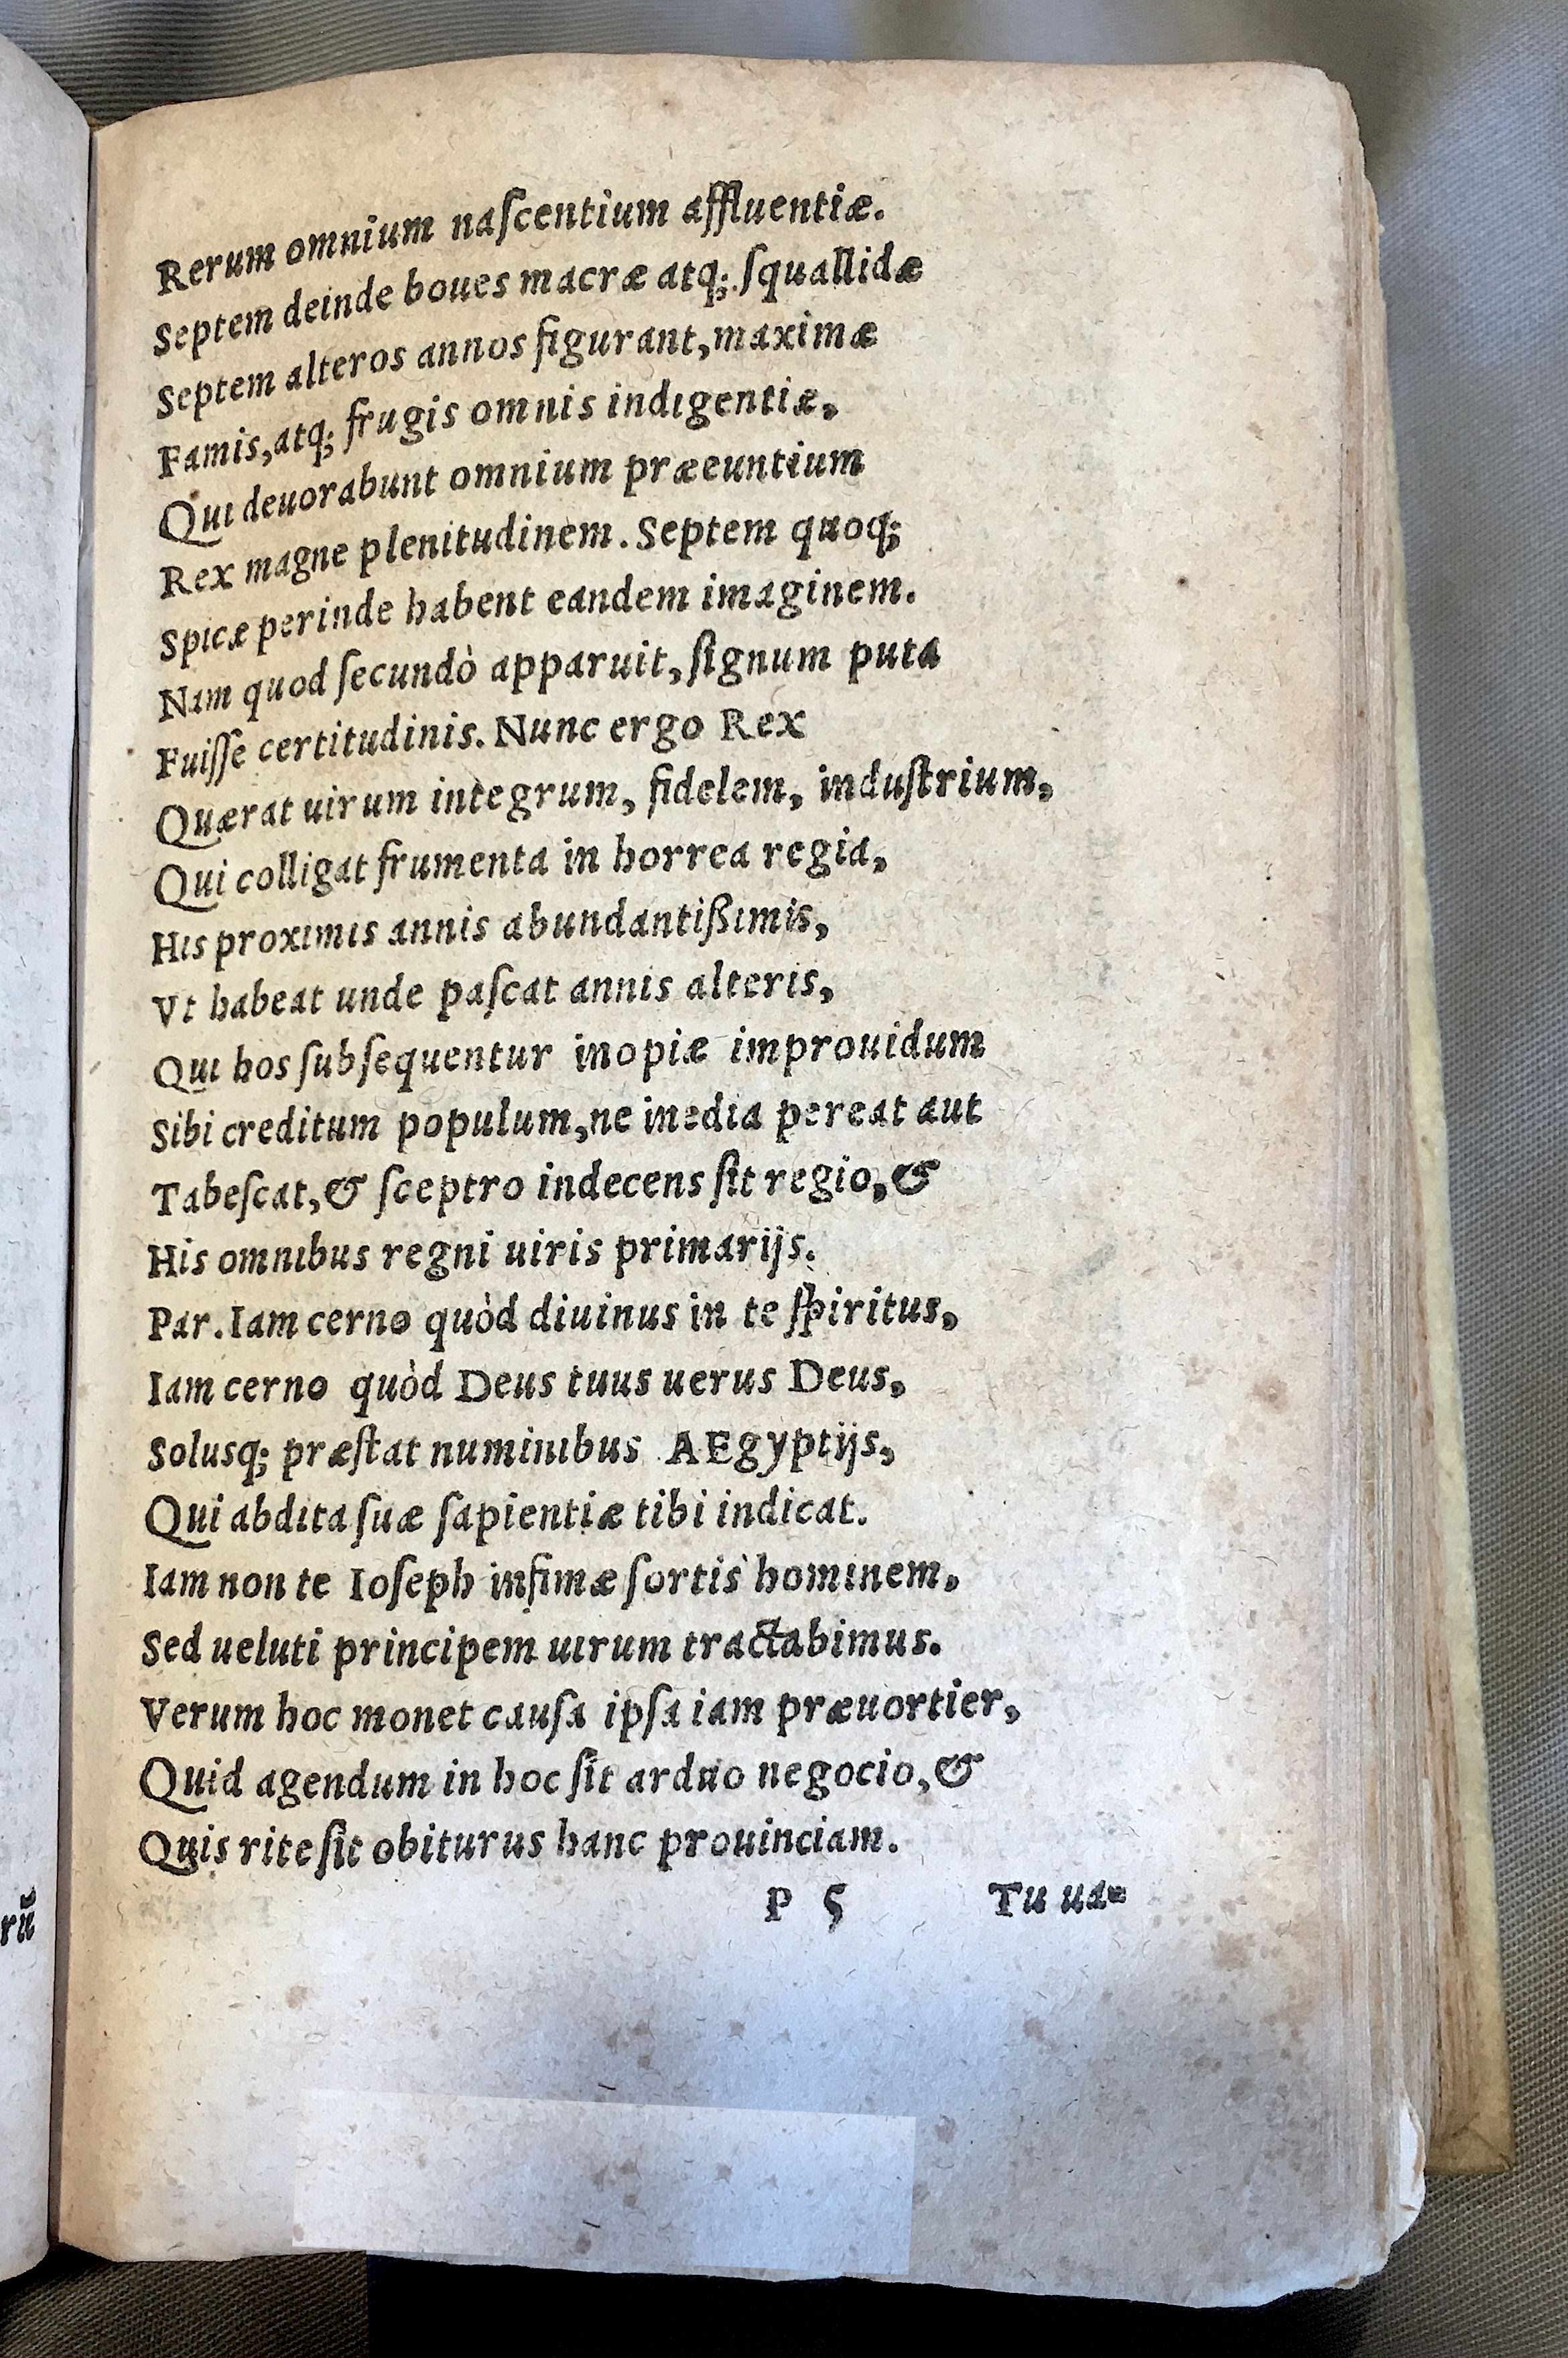 Rerum omnium naſcentium affluentiæ.
Septem deinde boues macræ atq; ſquallidæ
Septem alteros annos figurant, maximæ
Famis, atq; frugis omnis indigentiæ,
Qui deuorabunt omnium præeuntium
Rex magne plenitudinem. Septem quoq;
Spicæ perinde habent eandem imaginem.
Nam quod ſecundò apparuit, ſignum puta
Fuiſſe certitudinis. Nunc ergo Rex
Quærat uirum integrum, fidelem, induſtrium,
Qui colligat frumenta in horrea regia,
His proximis annis abundantißimis,
Vt habeat unde paſcat annis alteris,
Qui hos ſubſequentur inopiæ improuidum
Sibi creditum populum, ne inedia pereat aut
Tabeſcat, & ſceptro indecens ſit regio, &
His omnibus regni uiris primarijs.
Par. Iam cerno quòd diuinus in te ſpiritus,
Iam cerno quòd Deus tuus uerus Deus,
Solusq; præſtat numinibus AEgyptijs,
Qui abdita ſuæ ſapientiæ tibi indicat.
Iam non te Ioſeph infimæ ſortis hominem,
Sed ueluti principem uirum tractabimus.
Verum hoc monet cauſa ipſa iam præuortier,
Quid agendum in hoc ſit arduo negocio, &
Quis rite ſit obiturus hanc prouinciam.
P 5 Tu ua-
rũ